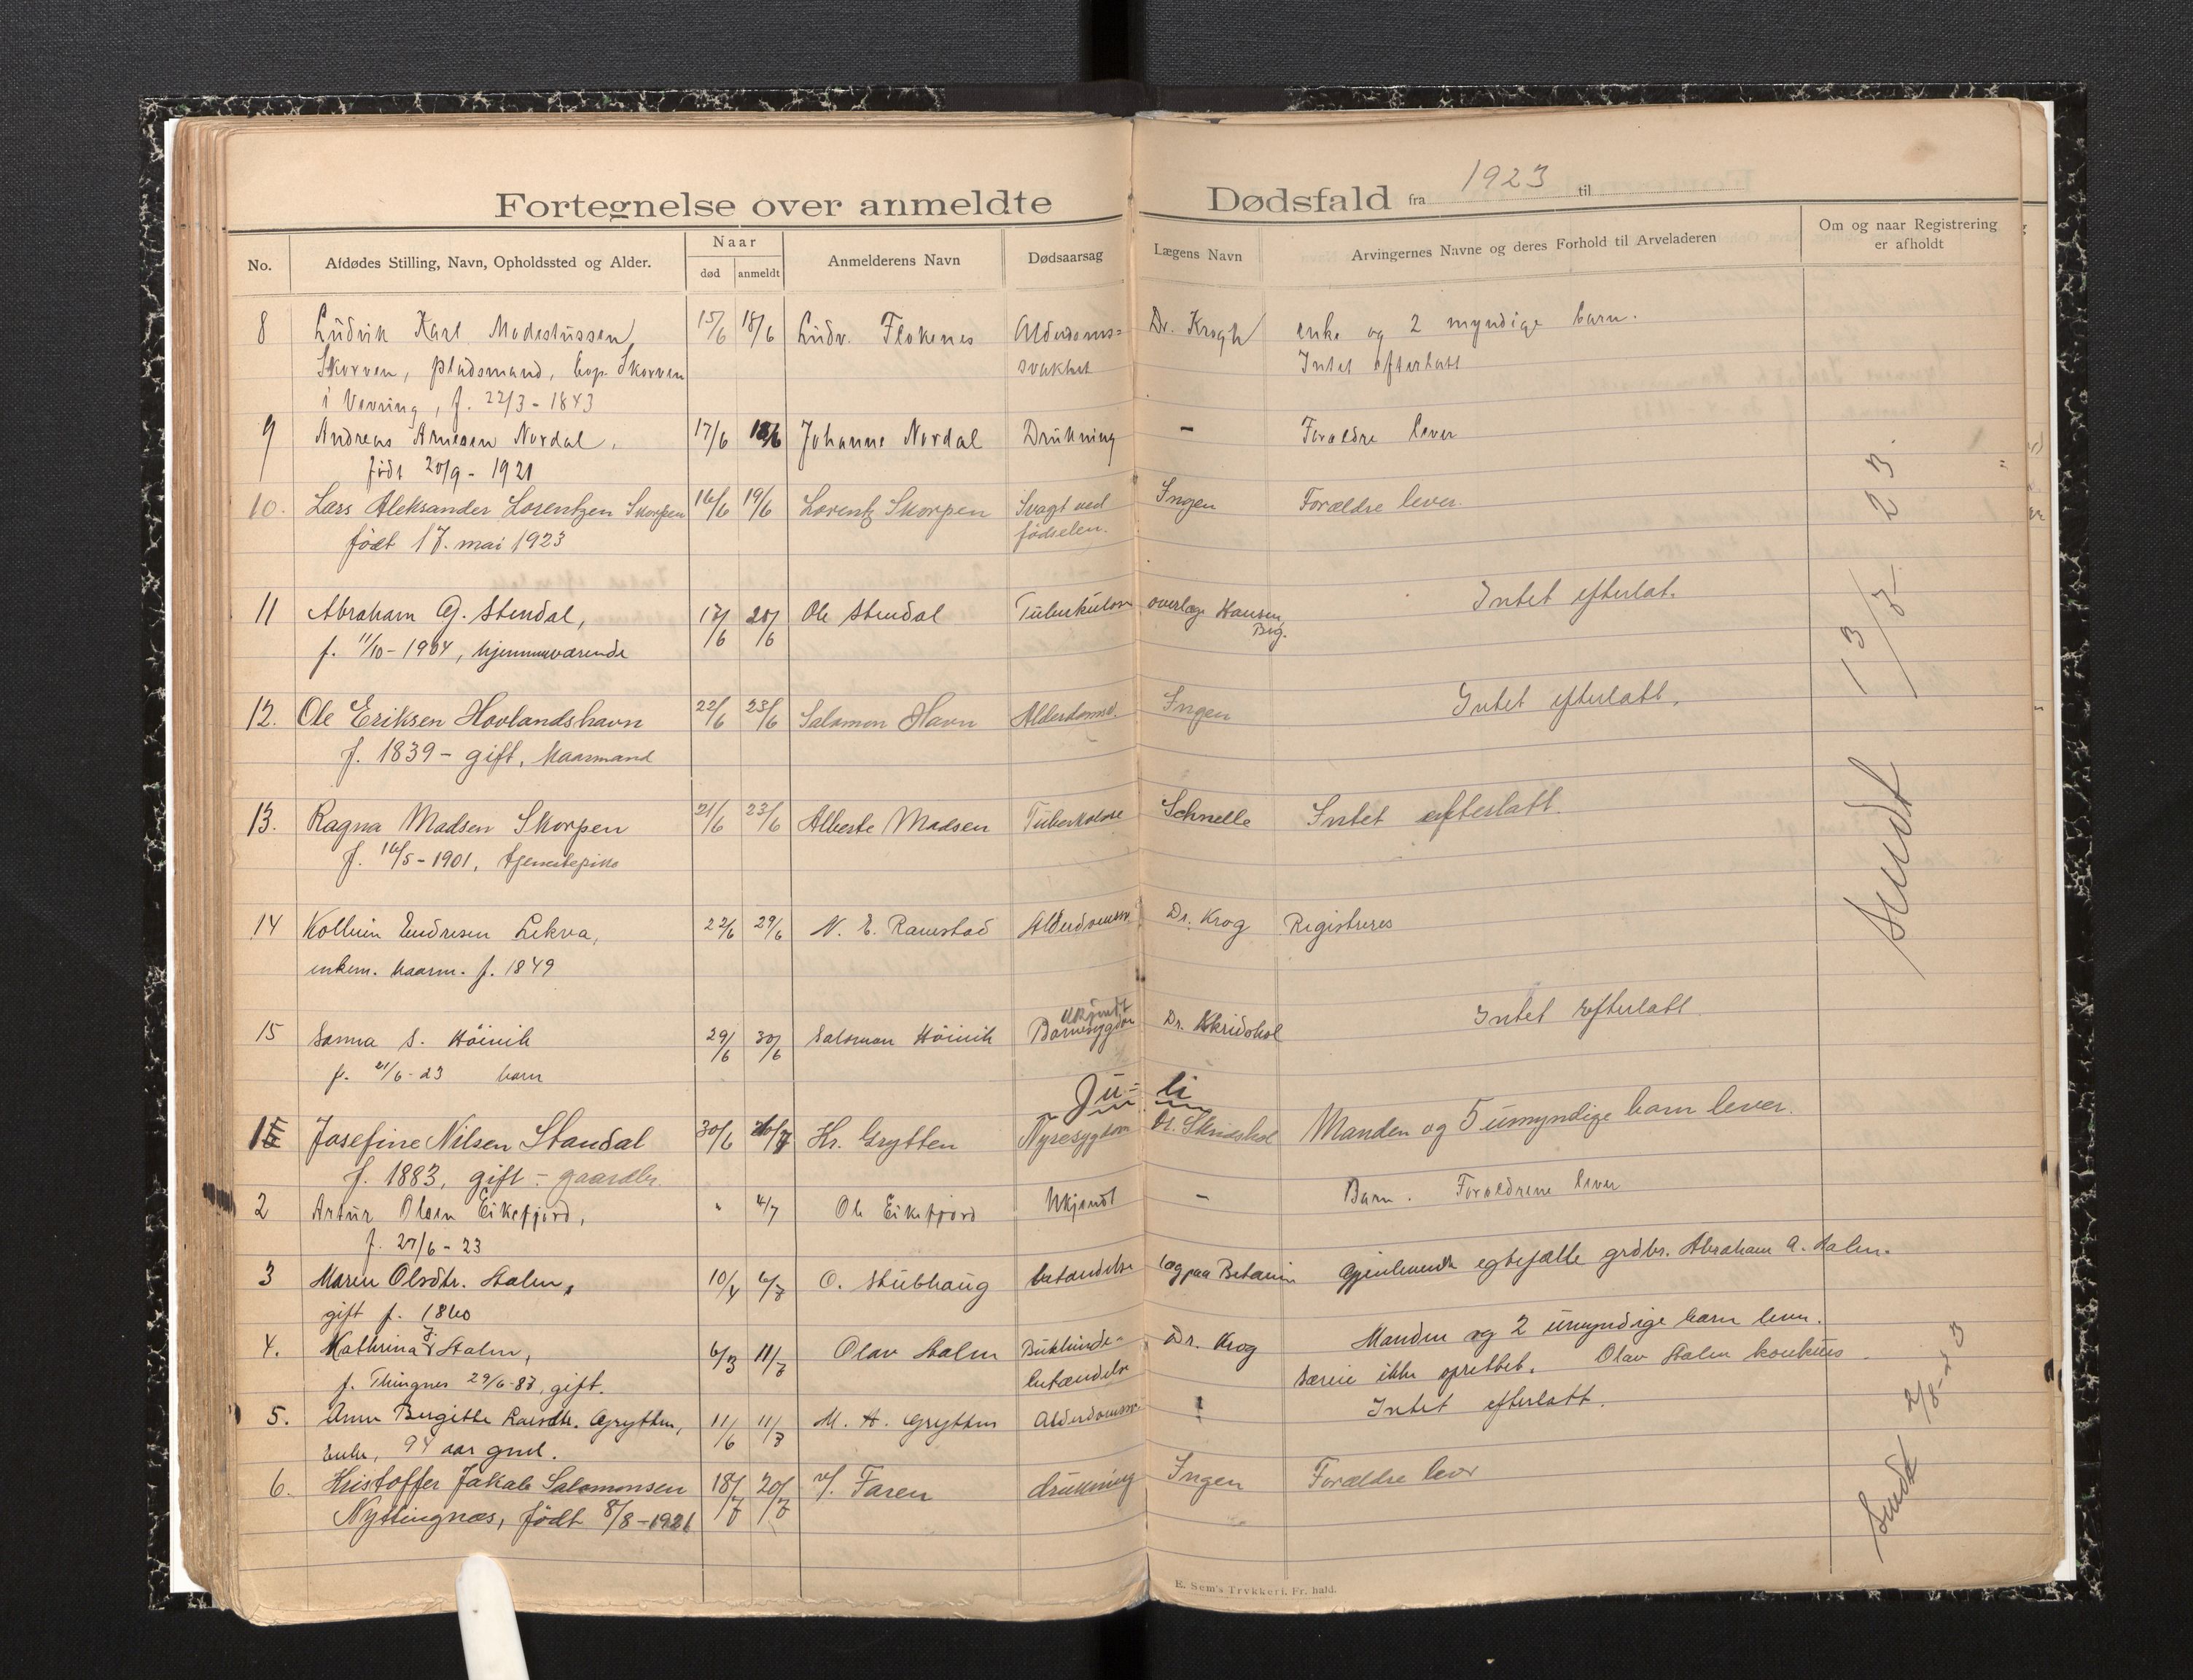 Fortegnelse over anmeldte Dødsfald fra 1923 til
No. Afdødes Stilling, Navn, Opholdssted og Alder. Naar død anmeldt Anmelderens Navn Dødsaarsag Lægens Navn Arvingernes Navne og deres Forhold til Arveladeren Om og naar Registrering er afholdt
8 Ludvik Karl Modestussen 15/6 18/6 Ludv. Flokenes Alderdoms= Dr. Krogh enke og 2 myndige barn.
Skorven, pladsmand, bop. Skorven svakhet Intet efterlatt
i Vevring, f. 22/3 - 1843
9 Andreas Arnesen Nordal, 17/6 18/6 Johanne Nordal Drukning - Forældre lever
født 20/9 - 1921
10. Lars Aleksander Lorentzen Skorpen 16/6 19/6 Lorentz Skorpen Svagt ved Ingen Forældre lever.
født 17. mai 1923 fødselen.
11 Abraham G. Stendal, 17/6 20/6 Ole Stendal Tuberkulose overlæge Hansen, Intet efterlat.
f. 11/10 - 1904, hjemmeværende Brg.
12. Ole Eriksen Hovlandshavn 22/6 23/6 Salamon Havn Alderdomsv. Ingen Intet efterlatt.
f. 1839 - gift, kaarmand
13. Ragna Madsen Skorpen 21/6 23/6 Alberte Madsen Tuberkolose Schnelle Intet efterlatt.
f. 16/5 - 1901, tjenestepike
14 Kolbein Endresen Lekva, 22/6 29/6 N. E. Ramstad Alderdomssv. Dr. Krog Registreres
enkem. kaarm. f. 1849
15 Sanna S. Høivik 29/6 30/6 Salomon Høivik Ukjendt Barnesygdom Dr. Skridshol Intet efterlatt.
f. 21/6 - 23 barn
Sendt 13/7 23.
Ju= li
1 Josefine Nilsen Standal 30/6 Kr. Grytten Nyresygdom Dr. Skridshol Manden og 5 umyndige barn lever.
f. 1883, gift - gaardbr.
2 Artur Olsen Eikefjord, " 4/7 Ole Eikefjord Ukjendt - Barn. Forældrene lever
f. 27/6 - 23
3 Maren Olsdtr. Stalen, 10/4 6/7 O. Stubhaug betændelse læg paa Betanien Gjenlevende egtefælle grdbr. Abraham A. Stalen.
gift f. 1860
4. Kathrina J. Stalen, 6/3 11/7 Olav Stalen Bukhinde= Dr. Krog Manden og 2 umyndige barn lever.
f. Thingnes 29/6 - 87, gift. betændelse Særeie ikke oprettet. Olav Stalen konkurs.
5. Anne Bergitte Larsdtr. Grytten, 11/6 11/7 M. A. Grytten Alderdomssv. Intet efterlatt.
Enke, 94 aar gml.
6. Kristoffer Jakob Salomonsen 18/7 20/7 Faren drukning Ingen Forældre lever
Nyttingnæs, født 8/8 - 1921
Sendt 2/8 - 23
E. Sem's Trykkeri, Fr. hald.